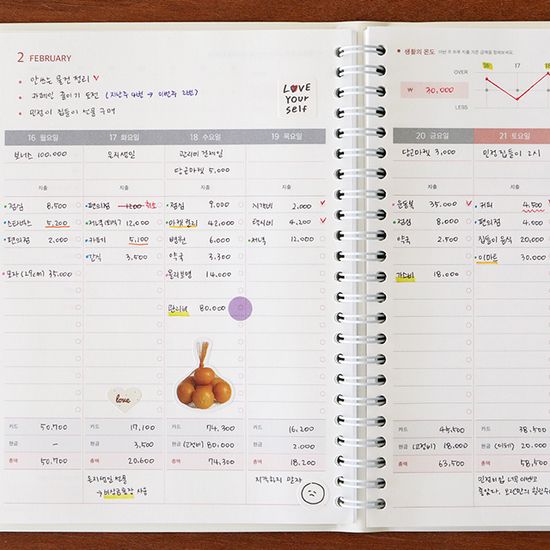 2 FEBRUARY
안쓰는 물건 정리 ✓
카페인 줄이기 도전 (지난주 4번 → 이번주 2번)
민정이 집들이 선물 구매
LOVE
Your
self
16 월요일
보너스 100,000
지출
점심 8,500
스타벅스 5,200
편의점 2,000
모자 (29cm) 35,000
카드 50,700
현금 -
총액 50,700
17 화요일
지출
편의점 1200 취소
12,000
카페 5,100
간식 3,500
love
카드 17,100
현금 3,500
총액 20,600
→ 비상금통장 사용
18 수요일
관리비 결제일
당근마켓 5,000
지출
점심 9,000
마켓컬리 42,000
병원 6,000
약국 3,300
올리브영 14,000
관리비 80,000
카드 74,300
현금 (고정비) 80,000
총액 74,300
19 목요일
지출
지각비 2,000 ✓
택시비 4,200 ✓
저녁 12,000
카드 16,200
현금 2,000
총액 18,200
지각하지 말자
생활의 온도
OVER
₩ 30,000
LESS
16 17 18
20 금요일
당근마켓 3,000
지출
운동복 35,000 ✓
점심 8,000
약국 2,500
가스비 18,000
카드 45,500
현금 (고정비) 18,000
총액 63,500
21 토요일
민정 집들이 2시
지출
커피 4,500
편의점 4,000
집들이 음식 20,000
이마트 30,000
카드 38,500
현금 20,000
총액 58,500